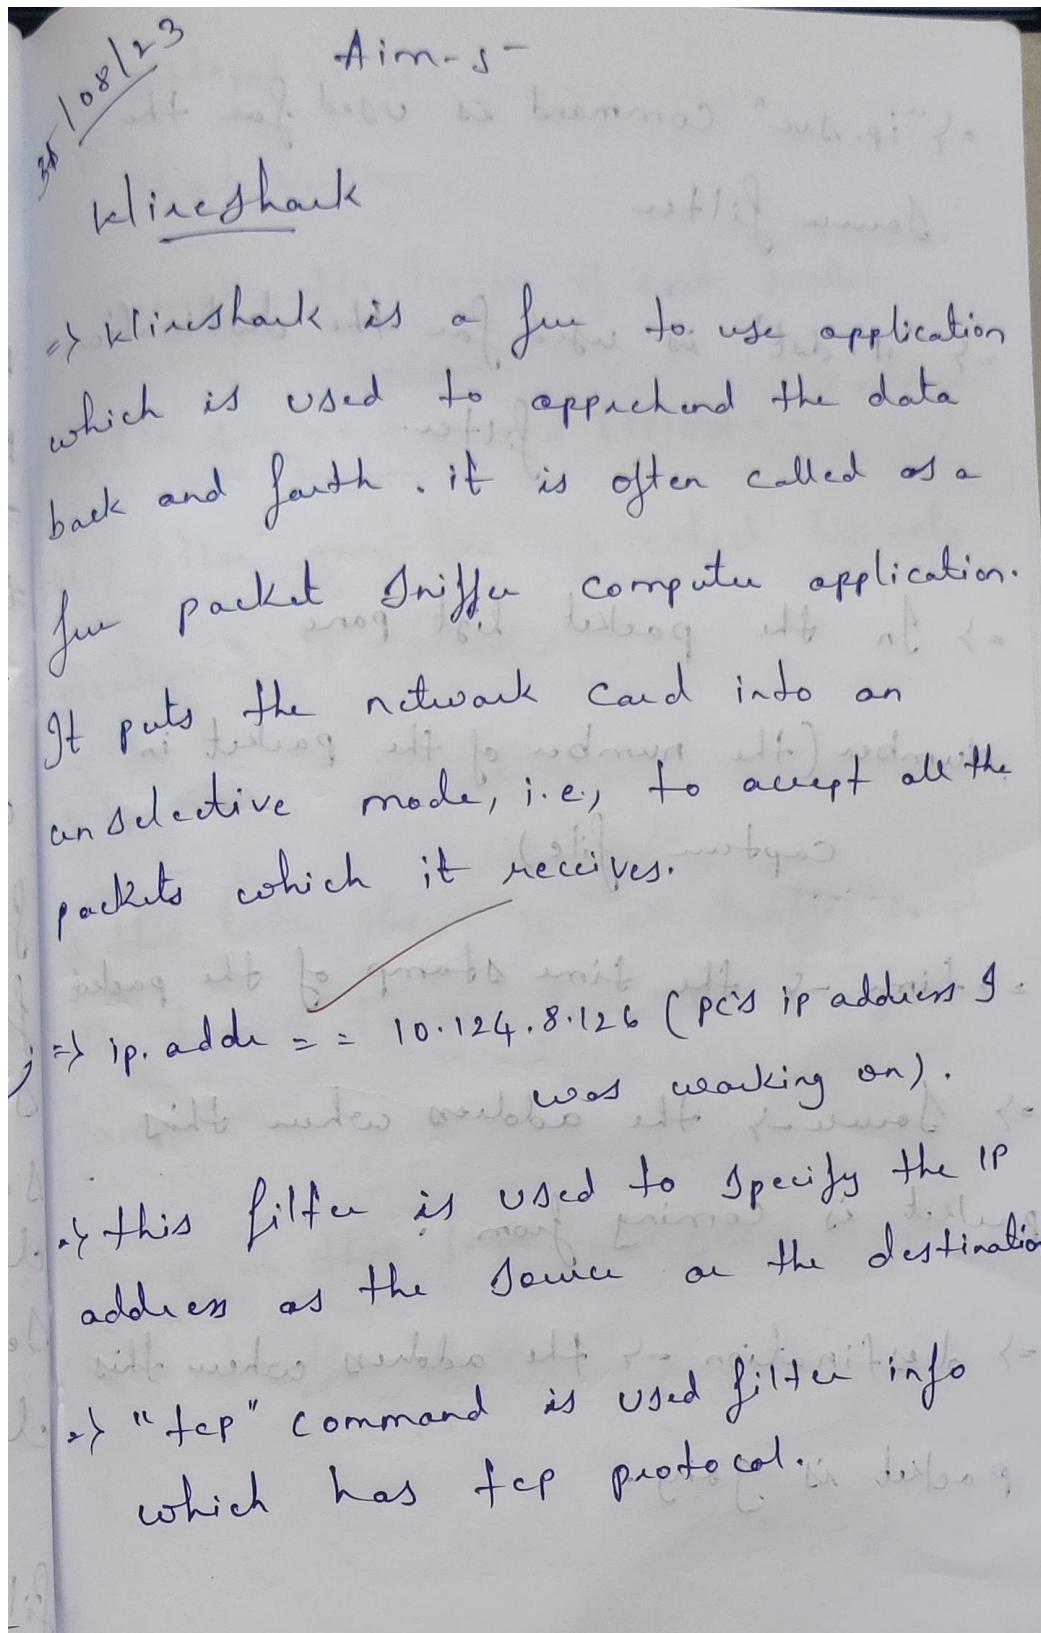 31/08/23
Aim-5-
Wireshark
=> Wireshark is a free to use application
which is used to apprehend the data
back and forth. it is often called as a
free packet sniffer computer application.
It puts the network card into an
unselective mode, i.e., to accept all the
packets which it receives.
=> ip.addr == 10.124.8.126 (pc's ip address I
was working on).
=> this filter is used to specify the IP
address as the source or the destination
=> "tcp" command is used filter info
which has tcp protocol.